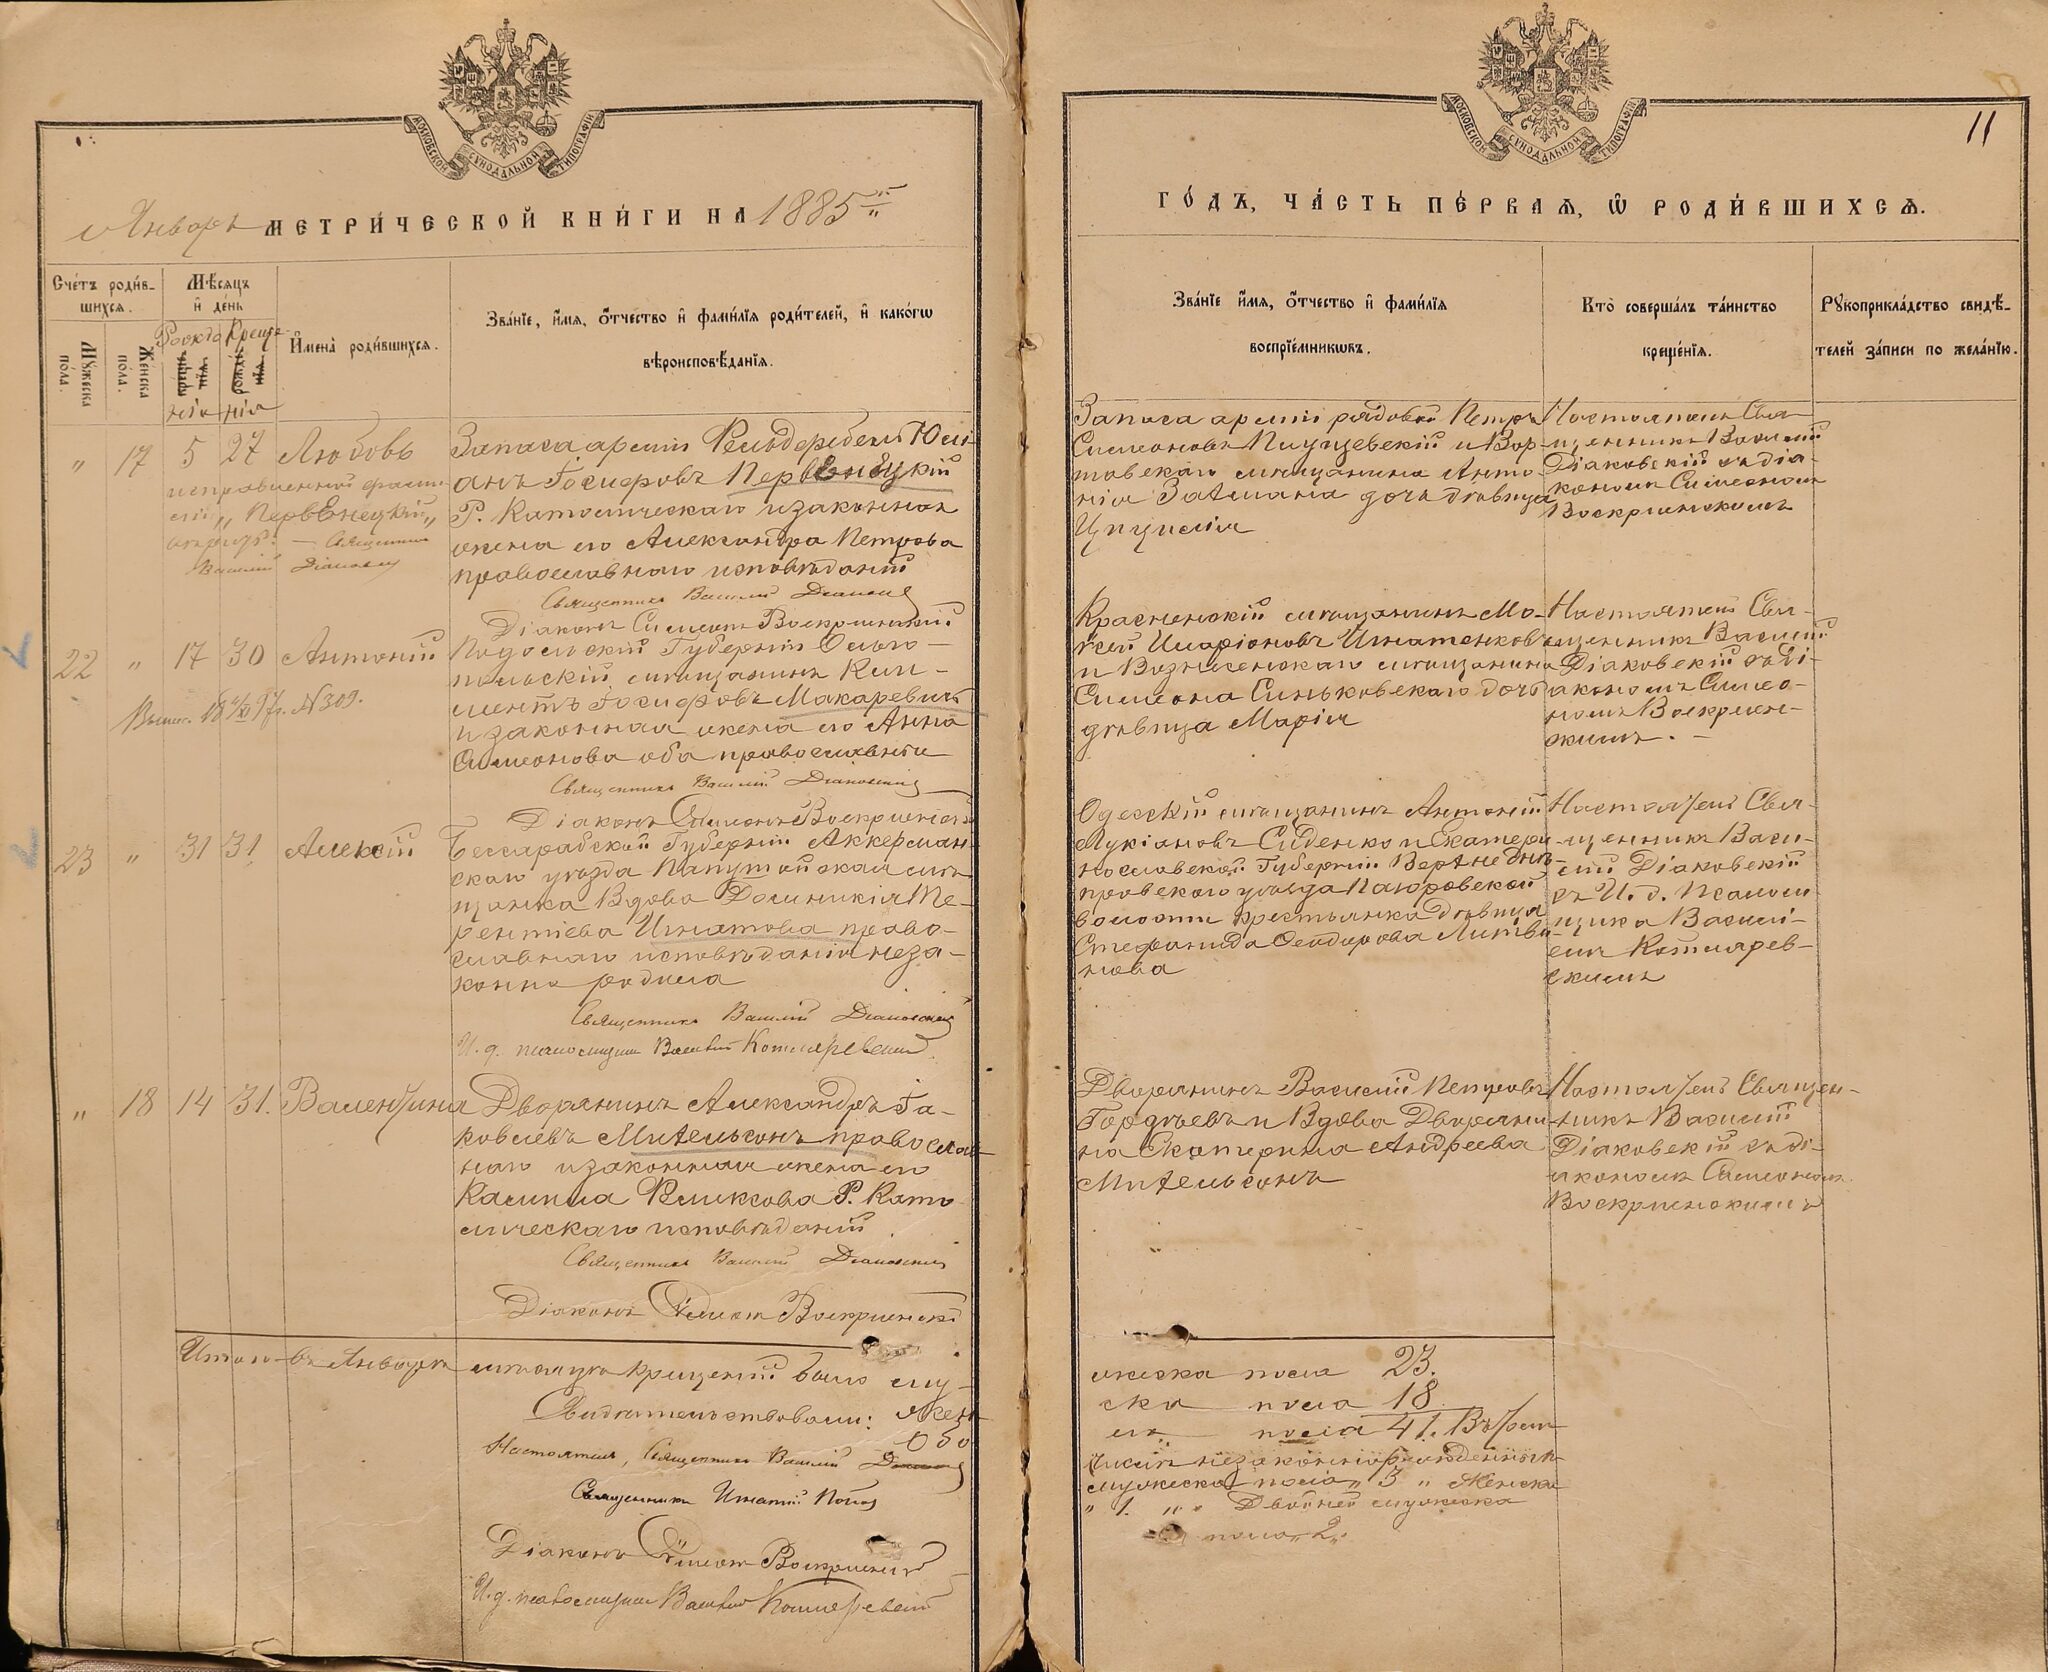 МОСКОВСКОЙ СѴНОДАЛЬНОЙ ТИПОГРАФІИ
Январь МЕТРИ́ЧЕСКОЙ КНИ́ГИ НА 1885
Сче́тъ роди́в-
шихся.
Мѣ́сяцъ
и҆ де́нь
Мꙋжеска по́ла.
Женска по́ла.
Рожде
нія
Креще
нія
И҆мена̀ роди́вшихся.
Зва́нїе, и҆́мя, ѻ҆́тчество и҆ фами́лїя роди́телей, и҆ како́гѡ
вѣроисповѣ́данїя.
" 17 5 27 Любовь
исправленной фами-
лiи „Первенецкий"
Священникъ
Василій Діаковскій
Запаса арміи Фельдфебель Юлі-
анъ Іосифовъ Первенецкій
Р. Католическаго и законная
жена его Александра Петрова
православнаго исповѣданій
Священникъ Василій Діаковскій
Діаконъ Симеонъ Воскресенскій
22 " 17 30 Антоній
№ 309.
Подольской Губерніи Ольго-
польскій мѣщанинъ Кли-
ментъ Іосифовъ Макаревичъ
и законная жена его Анна
Симеонова оба православныи
Священникъ Василій Діаковскій
Діаконъ Симеонъ Воскресенскій
23 " 31 31 Алексій
Бессарабской Губерніи Аккерман-
скаго уѣзда Папушойская мѣ-
щанка Вдова Домникія Те-
рентіева Игнатова право-
славнаго исповѣданія неза-
конно родила
Священникъ Василій Діаковскій
И. д. псаломщика Василій Котляревскій
" 18 14 31. Валентина
Дворянинъ Александръ Іа-
ковлевъ Мительсонъ православ-
наго и законная жена его
Камилла Феликсова Р. Като-
лическаго исповѣданій
Священникъ Василій Діаковскій
Діаконъ Симеонъ Воскресенскій
Итого въ Январѣ мѣсяцѣ крещеній было му-
Свидѣтельствовали: жен-
Обо-
Настоятель, Священникъ Василій Діаковскій
Священникъ Игнатій Попов
Діаконъ Симеонъ Воскресенскій
И. д. псаломщика Василій Котляревскій
МОСКОВСКОЙ СѴНОДАЛЬНОЙ ТИПОГРАФІИ
11
ГО́ДЪ, ЧА́СТЬ ПЕ́РВАЯ, Ѡ҆ РОДИ́ВШИХСЯ.
Зва́нїе и҆́мя, ѻ҆́тчество и҆ фами́лїя
воспрїе́мникѡвъ.
Кто̀ соверша́лъ та́инство
креще́нїя.
Рꙋкоприкла́дство свидѣ́-
телей за́писи по жела́нїю.
Запаса арміи рядовой Петръ
Симеоновъ и Вор-
товскаго мѣщанина Анто-
нія Затмана дочь дѣвица
Цецилія
Настоятель Свя-
щенникъ Василій
Діаковскій съ діа-
кономъ Симеономъ
Воскресенскимъ
Красненскій мѣщанинъ Мо-
исей Иларіоновъ Игнатенковъ
и Вознесенскаго мѣщанина
Симеона Синьковскаго дочь
дѣвица Марія
Настоятель Свя-
щенникъ Василій
Діаковскій съ Ді-
акономъ Симео-
номъ Воскресен-
скимъ. —
Одесскій мѣщанинъ Антоній
Лукіановъ Сиденко и Екатери-
нославской Губерніи Верхнеднѣ-
провскаго уѣзда
волости крестьянка дѣвица
Стефанида Феодорова Литви-
нова
Настоятель Свя-
щенникъ Васи-
лій Діаковскій
съ И. д. Псаломщ-
щика Василі-
емъ Котлярев-
скимъ
Дворянинъ Василій Петровъ
Гордѣевъ и Вдова Дворянин-
на Екатерина Андреева
Мительсонъ
Настоятель Священ-
никъ Василій
Діаковскій съ ді-
акономъ Симеономъ
Воскресенскимъ
жеска пола 23.
ска пола 18
его пола 41. Въ томъ
числѣ незаконнорожденныхъ
мужеска пола „ 3 „ Женска
„ 1. „ „ Двойней мужеска
пола „ 2 „